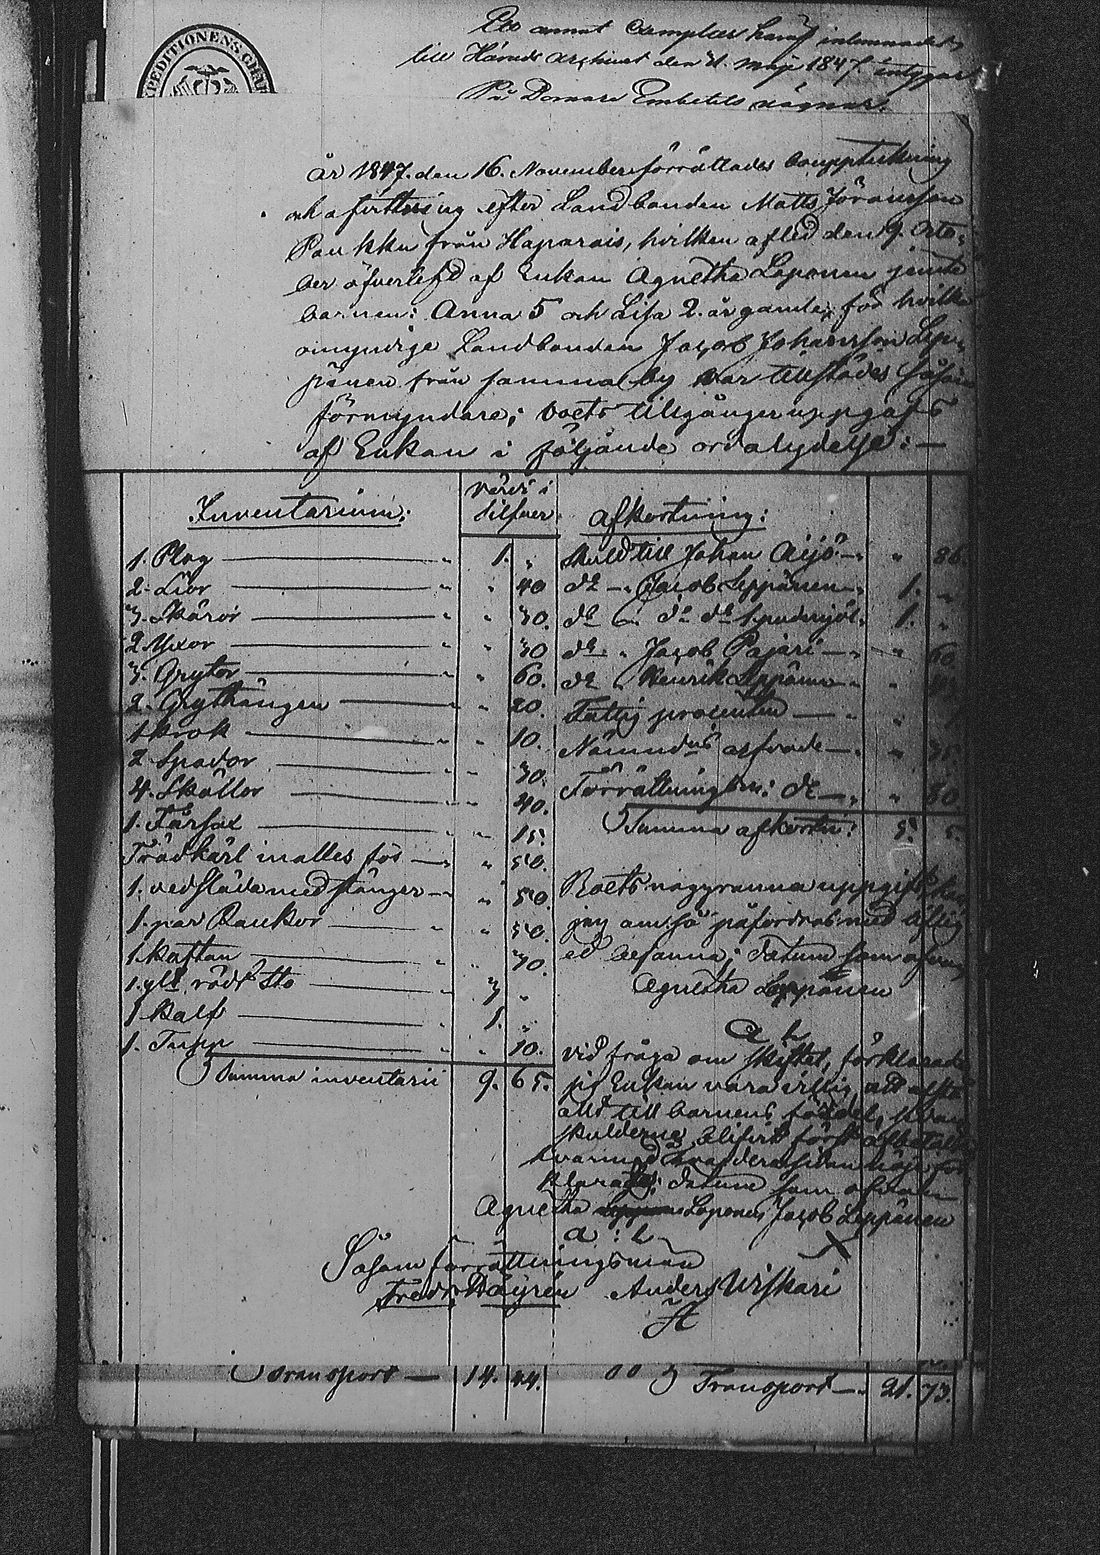 EXPEDITIONENS CHARTA
Ett annat Exemplar häraf inlemnadt
till Härads Archivet den 21 Maji 1847. intygar
På Domare Embetets vägnar.
År 1847. den 16. November förrättades bouppteckning
och afvittring efter Landbonden Matts Jöransson
Paukku från Haparais, hvilken afled den 9. Octo-
ber öfverlefd af Enkan Agnetha Laponen jemte
barnen: Anna 5 och Lisa 2. år gamla; för hvilka
omyndige Landbonden Jacob Johansson Lep-
pänen från samma by var tillstädes såsom
förmyndare; boets tillgångar uppgafs
af Enkan i följande ordalydelse: —
Inventarium:
värde i
Silfver
1. Plog 1. "
2. Liar " 40
3. Skäror " 30.
2 Yxor " 30
3. Grytor " 60.
2. Grythängen " 20.
1 krok " 10.
2 Spador " 30.
4. Skållor " 40.
1. Fårsax " 15.
Trädkärl inalles för " 50.
1. vedsläda med stänger " 50.
1. par Rankor " 50.
1. kaftan " 30.
1. gll röd Sto 3 "
1 Kalf 1. "
1. Tupp " 10.
Summa inventarii 9. 65.
Afkortning:
Skuld till Johan Äijö " 86.
do " Jacob Leppänen 1. "
do " do do 1.
do " Jacob Pajari " 60.
do " Henrik Leppänen "
Fattig procenten
Nämndens arfvode " 35.
Förrättningsm: do " 80.
Summa afkortn: 5. 5.
Boets noggranna uppgift kan
jag om så påfordras med liflig
ed besanna; Datum som ofvan
Agnetha Leppänen
A L
vid fråga om skiftet, förklarade
sig Enkan vara villig att afstå
allt till barnens fördel, sedan
skulderna blifvit först afbetalte
hvarmed
klarades; datum som ofvan
Agnetha Laponen, Jacob Leppänen
A : L X
Såsom förrättningsman
Fredr. Häyrén Anders Uiskari
Transport — 14. 44.
Transport — 21. 73.